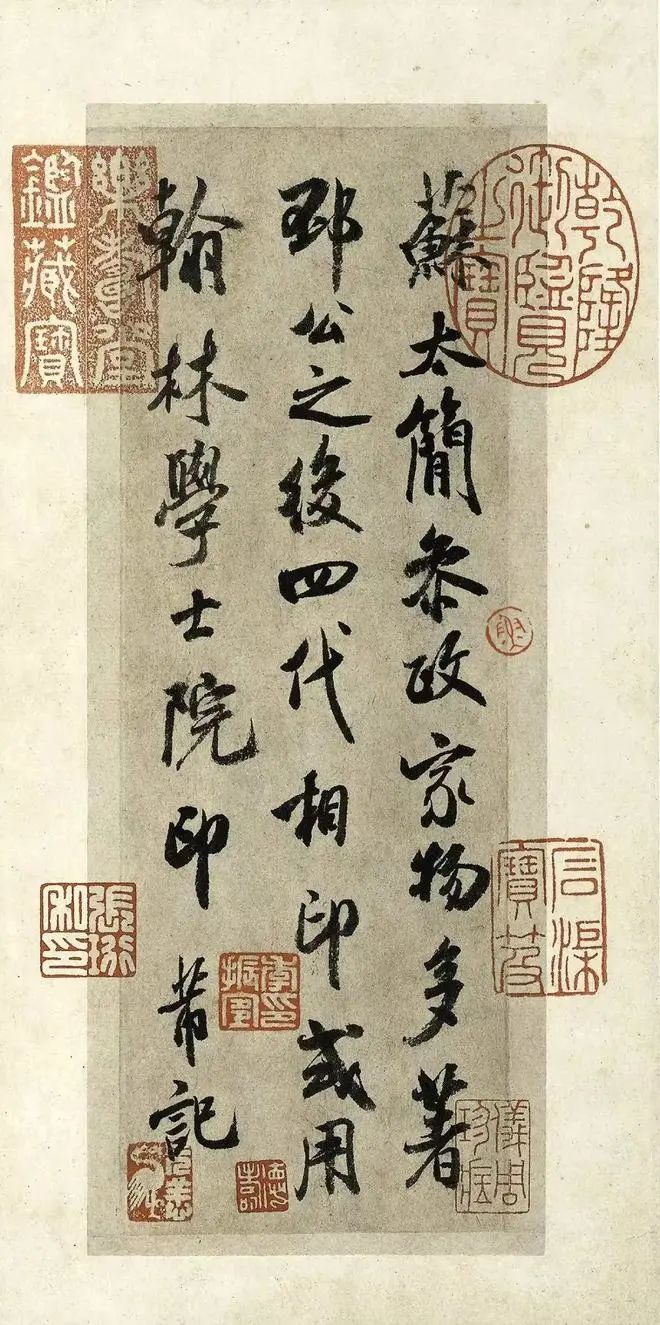 蘇太簡叅政家物多著
邳公之後四代相印或用
翰林學士院印 芾記
乾隆御覽之寶
石渠寶笈
儀周珍藏
樂壽堂鑑藏寶
張珩私印